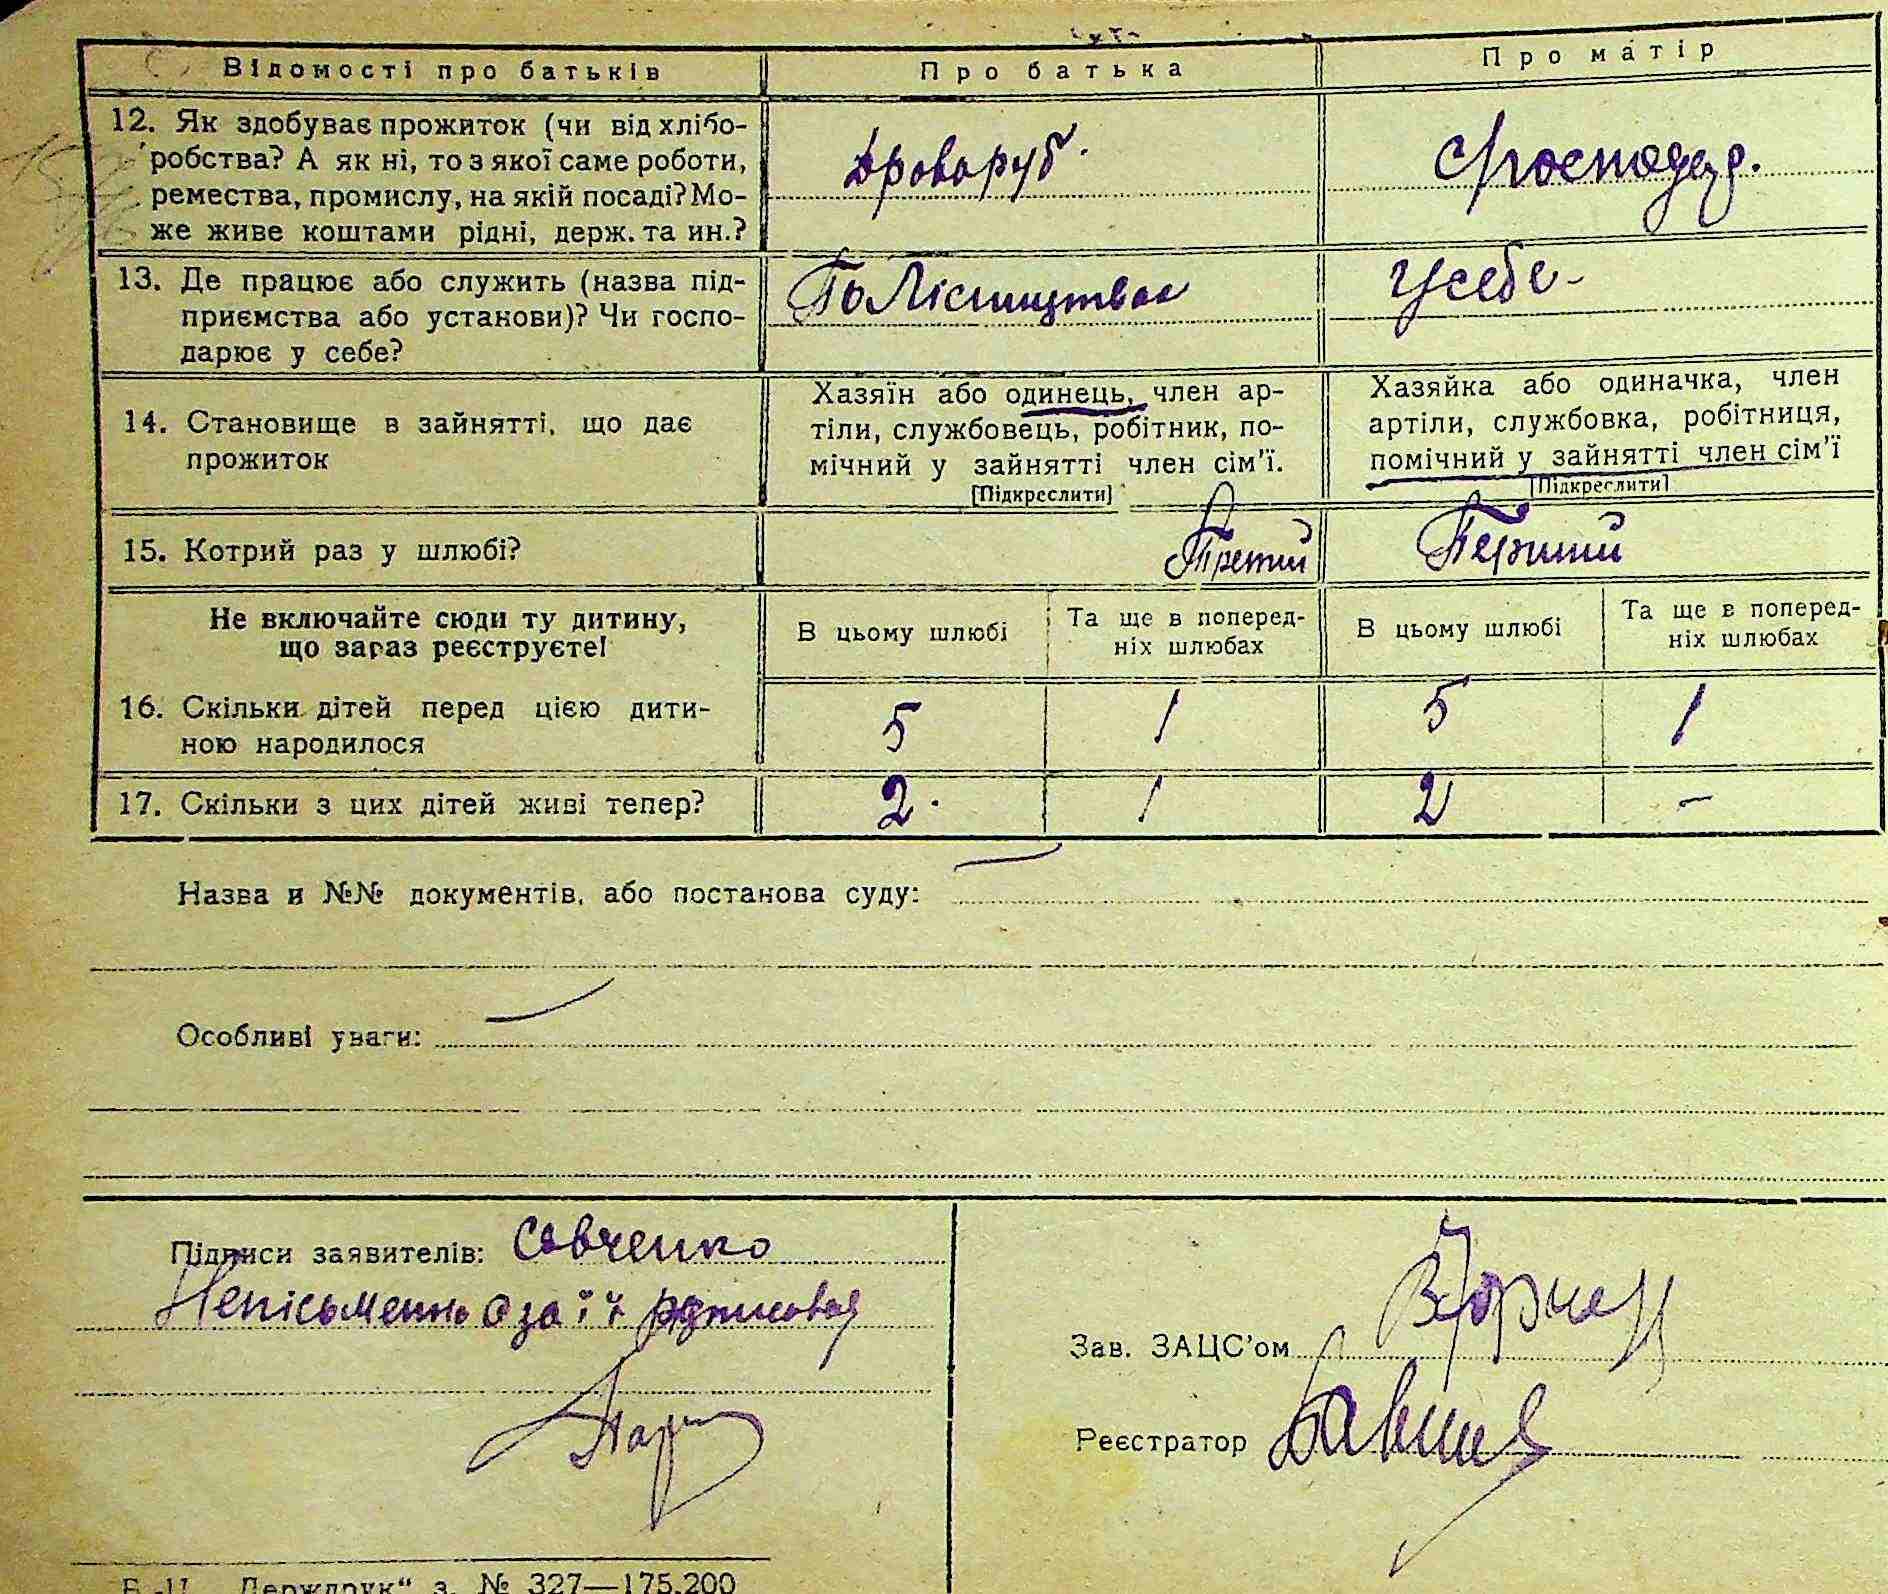 Відомості про батьків Про батька Про матір
12. Як здобуває прожиток (чи від хлібо-
робства? А як ні, то з якої саме роботи,
ремества, промислу, на якій посаді? Мо-
же живе коштами рідні, держ. та ин.?
Дроваруб.
Господар.
13. Де працює або служить (назва під-
приємства або установи)? Чи госпо-
дарює у себе?
По Лісництвах
У себе
14. Становище в зайнятті, що дає
прожиток
Хазяїн або одинець, член ар-
тіли, службовець, робітник, по-
мічний у зайнятті член сім'ї.
[Підкреслити]
Хазяйка або одиначка, член
артіли, службовка, робітниця,
помічний у зайнятті член сім'ї
[Підкреслити]
15. Котрий раз у шлюбі? Третий Перший
Не включайте сюди ту дитину,
що зараз реєструєте!
В цьому шлюбі
Та ще в поперед-
ніх шлюбах
В цьому шлюбі
Та ще в поперед-
ніх шлюбах
16. Скільки дітей перед цією дити-
ною народилося
5 1 5 1
17. Скільки з цих дітей живі тепер? 2. 1 2 –
Назва и №№ документів, або постанова суду: —
Особливі уваги: —
Підписи заявителів: Савченко
Неписьменно а за її
Зав. ЗАЦС'ом
Реєстратор
Держдрук" з. № 327—175.200